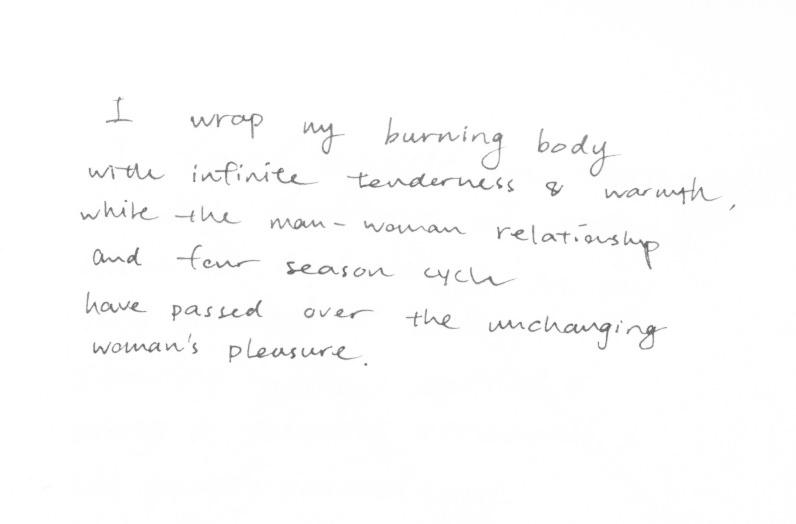 I wrap my burning body
with infinite tenderness & warmth,
while the man-woman relationship
and four season cycle
have passed over the unchanging
woman's pleasure.